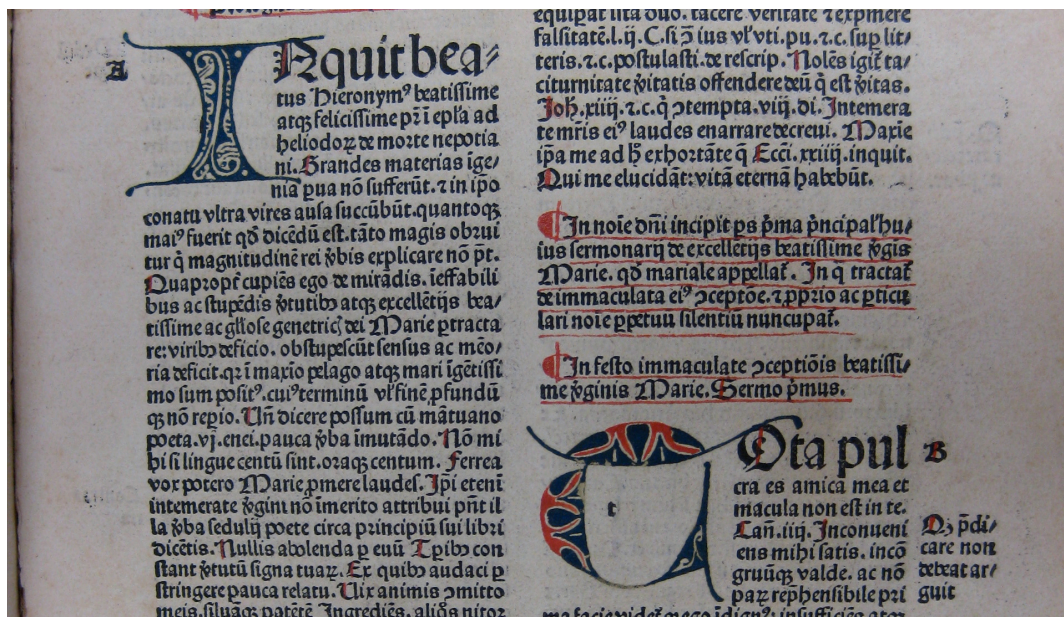 A
INquit bea⸗
tus Hieronymꝰ beatissime
atqꝫ felicissime pr̄ ī epl̄a ad
heliodoꝝ de morte nepotia
ni. Grandes materias īge⸗
nia ꝑua nō sufferūt. ⁊ in ip̄o
conatu vltra vires ausa succūbūt. quantoqꝫ
maiꝰ fuerit qḋ dicēdū est. tāto magis obrui
tur q̇ magnitudinē rei v̓bis explicare nō pt̄.
Quapropt̓ cupiēs ego de mirādis. ieffabili
bus ac stupēdis v̓tutibꝫ atqꝫ excellētijs bea⸗
tissime ac gl̄iose genetricꝭ dei Marie ꝑtracta
re: viribꝫ deficio. obstupescūt sensus ac mēo⸗
ria deficit. qr ī maxīo pelago atqꝫ mari īgētissi
mo sum positꝰ. cuiꝰ terminū vl̓ finē ꝓfundū
qꝫ nō reꝑio. Un̄ dicere possum cū mātuano
poeta. vj. enei. pauca v̓ba īmutādo. Nō mi
hi si lingue centū sint. oraqꝫ centum. Ferrea
vox potero Marie ꝓmere laudes. Ip̄i etenī
intemerate v̓gini nō īmerito attribui pn̄t il
la v̓ba sedulij poete circa principiū sui libri
dicētis. Nullis abolenda ꝑ euū Tꝑibꝫ con
stant v̓tutū signa tuaꝝ. Ex quibꝫ audaci ꝑ
stringere pauca relatu. Uix animis ꝯmitto
meis. siluāqꝫ patētē Ingrediēs. aliq̊s nitor
equiꝑat ista duo. tacere veritatē ⁊ exp̓mere
falsitatē. l. ij. C. si ꝯ̄ ius vl̓ vti. pu. ⁊. c. suꝑ lit⸗
teris. ⁊. c. postulasti. de rescrip. Nolēs igit̓ ta⸗
citurnitate v̓itatis offendere deū q̇ est v̓itas.
Joh̄. xiiij. ⁊. c. q̇ ꝯtempta. viij. di. Intemera
te mr̄is eiꝰ laudes enarrare decreui. Maxīe
ip̄a me ad h̓ exhortāte q̄ Ecc̄i. xxiiij. inquit.
Qui me elucidāt: vitā eternā habebūt.
¶ In noīe dn̄i incipit ꝑs p̓ma p̓ncipal̓ hu⸗
ius sermonarij de excellētijs beatissime v̓gis
Marie. qḋ mariale appellat̓. In q̊ tractat̓
de immaculata eiꝰ ꝯceptōe. ⁊ ꝓprio ac ꝑticu
lari noīe ꝑpetuū silentiū nuncupat̓.
¶ In festo immaculate ꝯceptiōis beatissi⸗
me v̓ginis Marie. Sermo p̓mus.
t
TOta pul
B
cra es amica mea et
macula non est in te.
Can̄. iiij. Inconueni
ens mihi satis. incō
gruūqꝫ valde. ac nō
paꝝ rep̄hensibile pri
Qꝫ p̄di⸗
care non
debeat ar⸗
guit